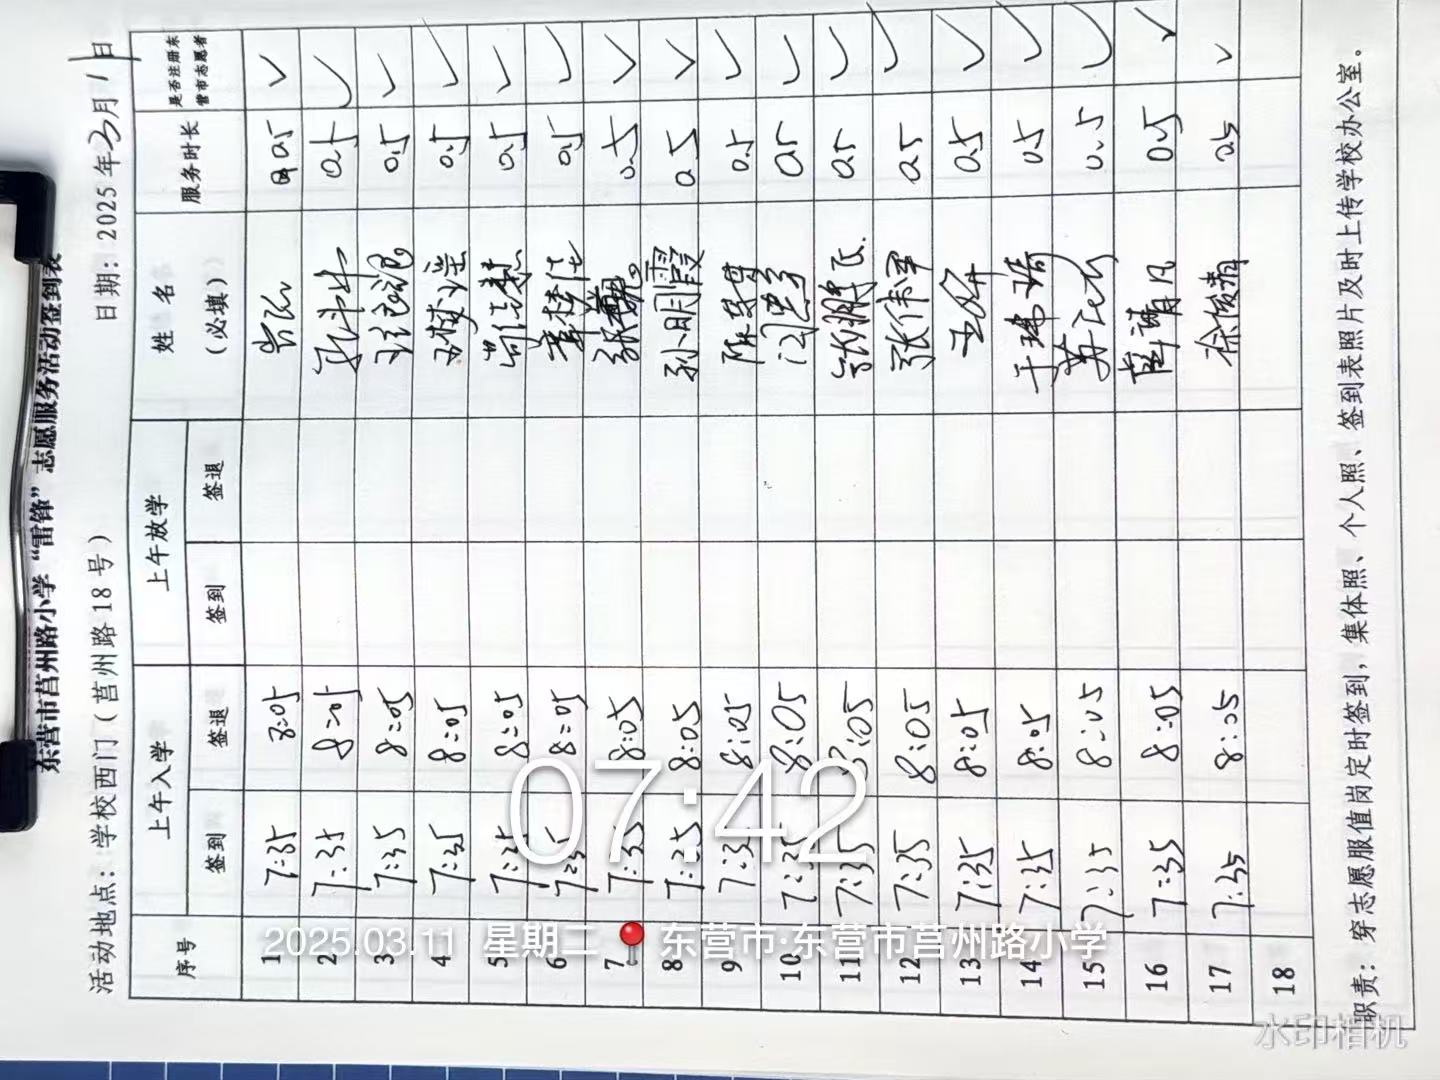 东营市莒州路小学“雷锋”志愿服务活动签到表
活动地点：学校西门（莒州路18号） 日期：2025年3月11日
序号 上午入学 上午放学 姓名（必填） 服务时长 是否注册东营市志愿者
签到 签退 签到 签退
1 7:35 8:05 0.5 ✓
2 7:35 8:05 0.5 ✓
3 7:35 8:05 0.5 ✓
4 7:35 8:05 0.5 ✓
5 7:35 8:05 0.5 ✓
6 7:35 8:05 0.5 ✓
7 7:35 8:05 0.5 ✓
8 7:35 8:05 孙明霞 0.5 ✓
9 7:35 8:05 0.5 ✓
10 7:35 8:05 0.5 ✓
11 7:35 8:05 0.5 ✓
12 7:35 8:05 张伟军 0.5 ✓
13 7:35 8:05 0.5 ✓
14 7:35 8:05 0.5 ✓
15 7:35 8:05 0.5 ✓
16 7:35 8:05 0.5 ✓
17 7:35 8:05 徐俊青 0.5 ✓
18
职责：穿志愿服值岗定时签到，集体照、个人照、签到表照片及时上传学校办公室。
07:42
2025.03.11 星期二 东营市·东营市莒州路小学
水印相机